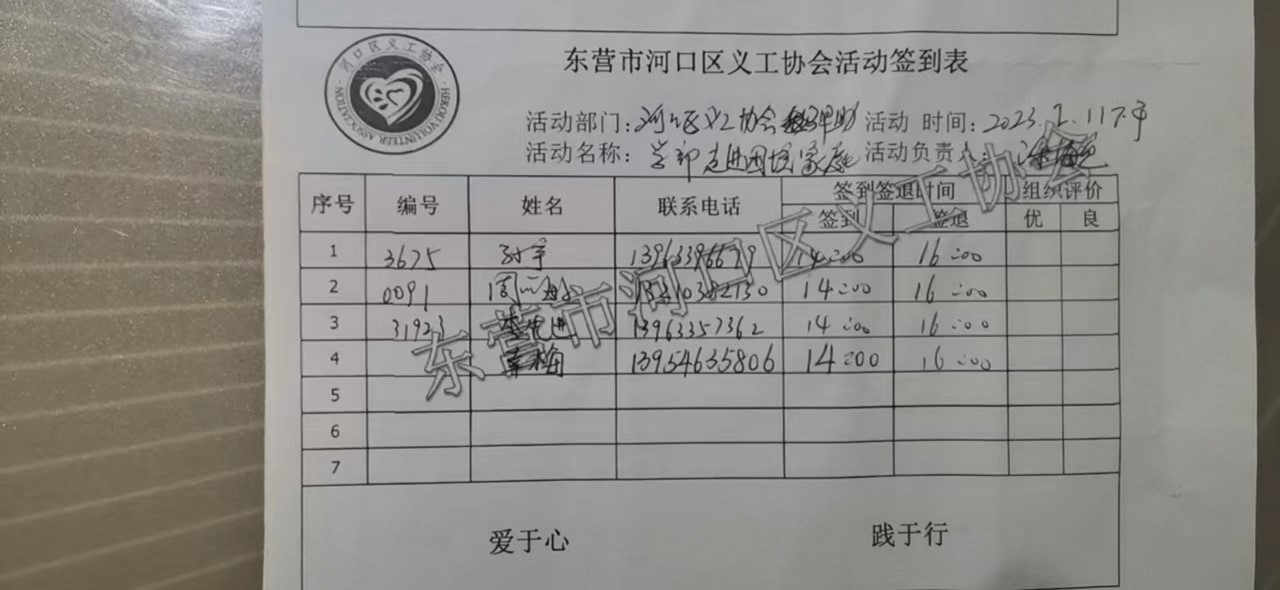 河口区义工协会
HEKOU VOLUNTEER ASSOCIATION
东营市河口区义工协会活动签到表
活动部门:河口区义工协会 活动 时间:2023.
活动名称: 走进困境家庭 活动负责人:
序号 编号 姓名 联系电话 签到签退时间 组织评价
签到 签退 优 良
1 3675 孙宇 13963396679 14:00 16:00
2 0091 周 14:00 16:00
3 31923 13963357362 14:00 16:00
4 李梅 13954635806 14:00 16:00
5
6
7
爱于心 践于行
东营市河口区义工协会